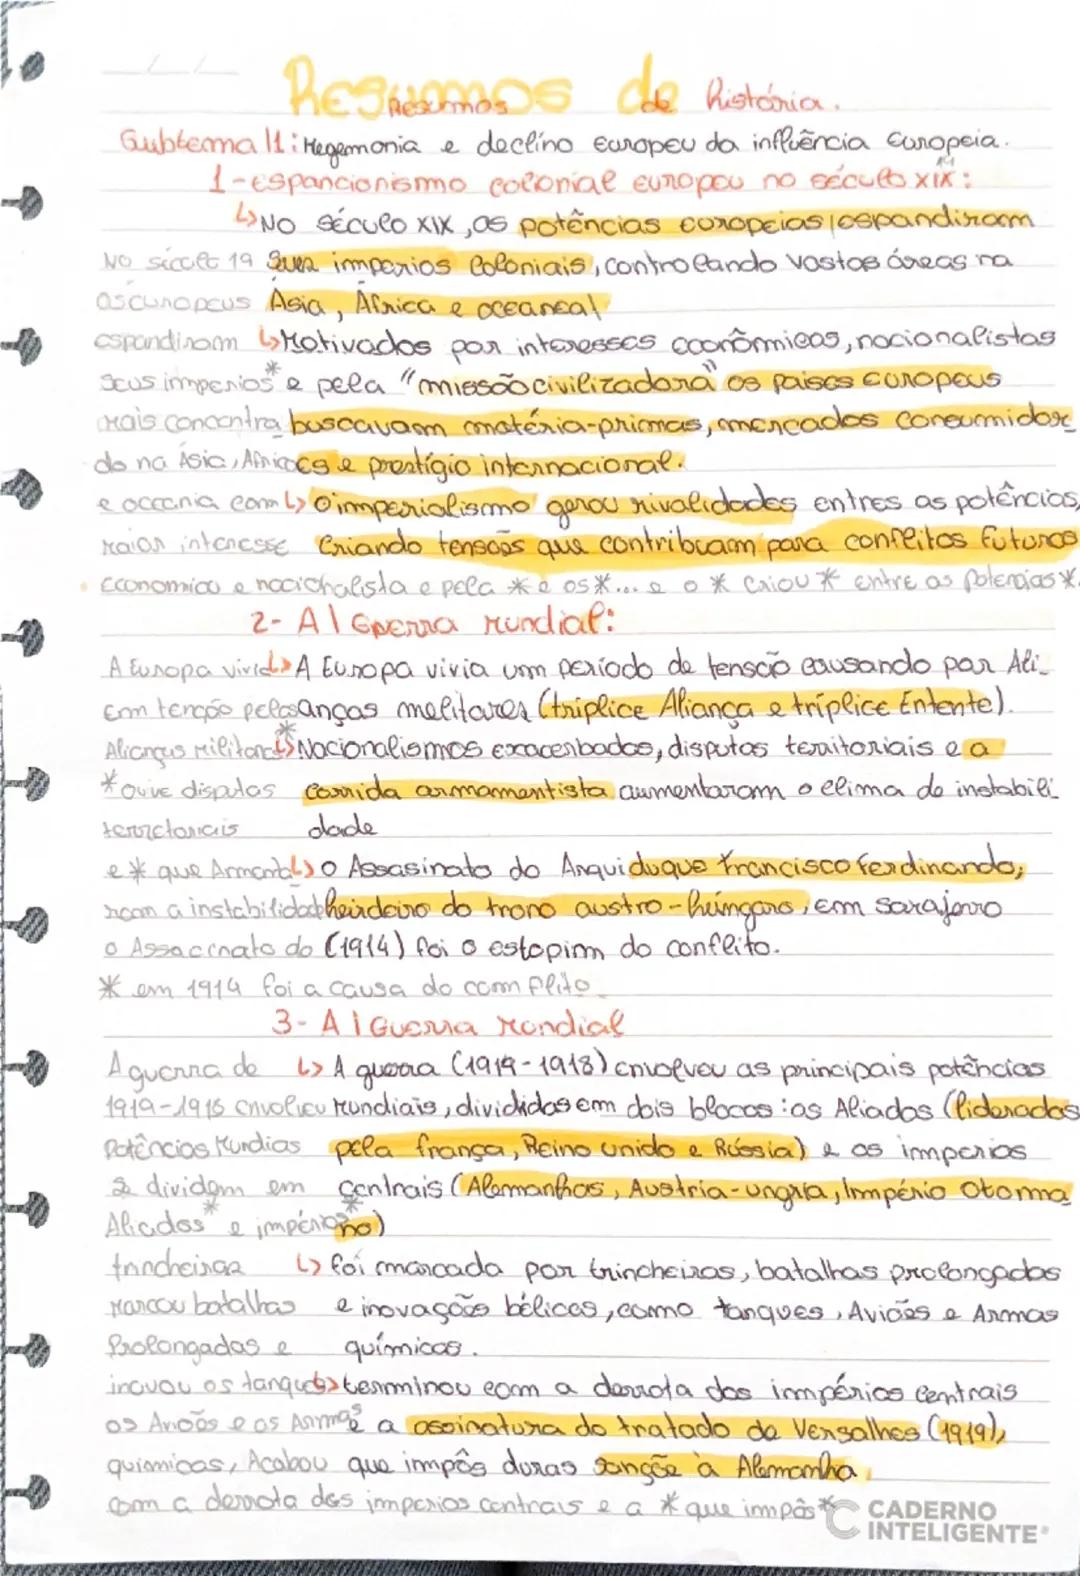 Resumos de história.
Resumos de
Subtema I1: Hegemonia e declíno europeu da influência europeia.
1-espancionismo colonial europeu no século xix:
19
↳No século XIX, as potências europeias espandiram
No século 19 Seus imperios coloniais, controlando vastas áreas na
os europeus Ásia, África e oceaneal
espandiram ↳Motivados por interesses econômicos, nacionalistas
seus imperios* e pela "missão civilizadora" os paises europeus
mais concentra buscavam matéria-primas, mercados consumidor
do na Asia, Africa es e prestígio internacional.
e occania com ↳O imperialismo gerou rivalidades entres as potências,
maior interesse Criando tensões que contribuam para conflitos futuros
Economico e nacionalista e pela * e os *... e o * criou * entre as potencias *.
2- A I Guerra mundial:
A Europa vivid ↳A Europa vivia um período de tensão causando por Ali-
em tenção pelas anças melitares (tríplice Aliança e tríplice Entente).
Alianças Militares* ↳Nacionalismos exacerbados, disputas territoriais e a
*ouve disputas corrida armamentista aumentaram o clima de instabili
terretoriais dade
e * que Armenta ↳o Assasinato do Arquiduque francisco ferdinando,
ram a instabilidade heirdeiro do trono austro-húngaro, em sarajevo
o Assacinato do (1914) foi o estopim do conflito.
* em 1914 foi a causa do comflito.
3- A I Guerra mondial
A guerra de ↳ A guerra (1914-1918) envolveu as principais potências
1919-1918 envolveu mundiais, divididas em dois blocos: os Aliados (liderados
Potências Mundias pela frança, Reino unido e Rússia) e os imperios
se dividem em centrais (Alemanhas, Austria-ungria, Império Otoma
Aliados* e impérios* no)
trincheiras ↳ foi marcada por trincheiras, batalhas prolongadas
Marcou batalhas e inovações bélicas, como tanques, Aviões e Armas
Prolongadas e químicas.
inovou os tanques ↳terminou com a derrota dos impérios centrais
os Avioes e os Armas e a assinatura do tratado de Versalhes (1919),
quimicas, Acabou que impôs duras sangõe à Alemanha.
com a derrota dos imperios centrais e a * que impôs *
CADERNO
INTELIGENTE®